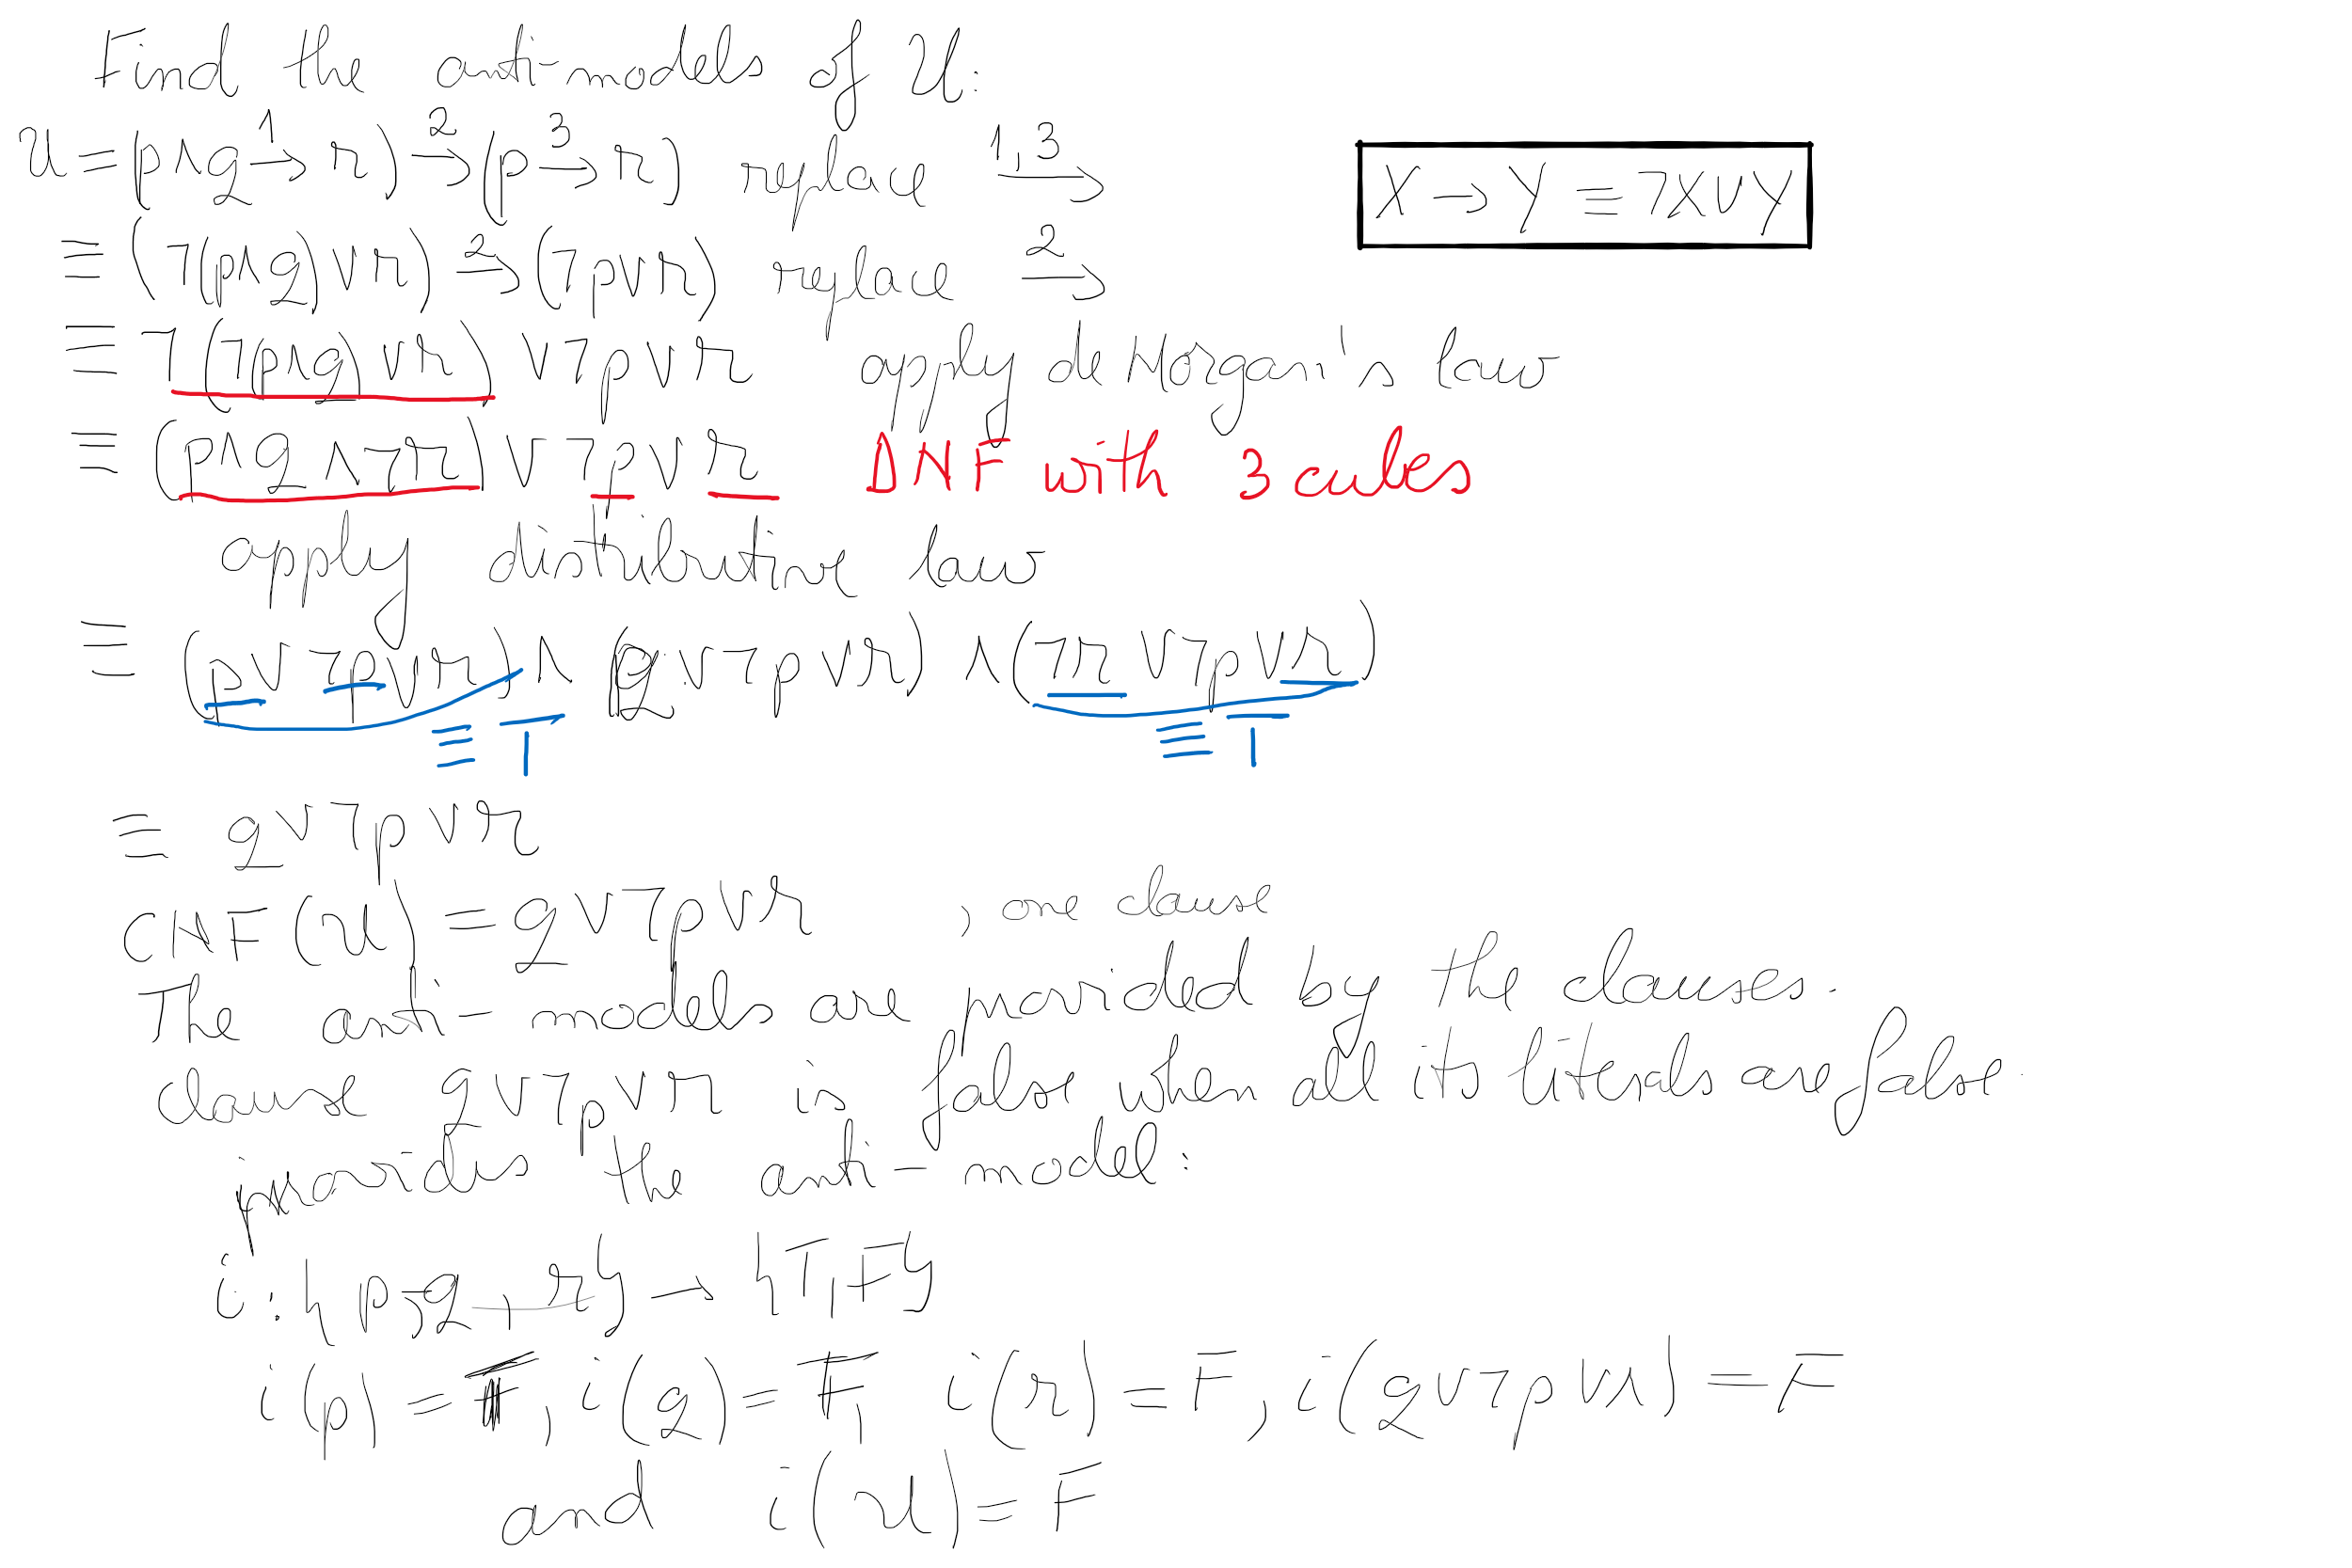 Find the anti-models of U:
U=(p∧q →¹ r) →² (p →³ r) replace →¹,³
X → Y ≡ ¬X∨Y
≡ (¬(p∧q)∨r) →² (¬p∨r) replace →²
≡ ¬(¬(p∧q)∨r) ∨¬p∨r apply de Morgan's law
≡ (p∧q∧¬r)∨¬p∨r DNF with 3 cules
apply distributive law
≡ (p∨¬p∨r)∧(q∨¬p∨r)∧(¬r∨¬p∨r)
≡ T ≡ T
≡ q∨¬p∨r
CNF(U)=q∨¬p∨r , one clause
The anti-models are provided by the clauses.
clause q∨¬p∨r is false when all its literals are false.
provides the anti-model:
i:{p,q,r}→{T,F}
i(p)=T, i(q)=F, i(r)=F, i(q∨¬p∨r)=F
and i(U)=F